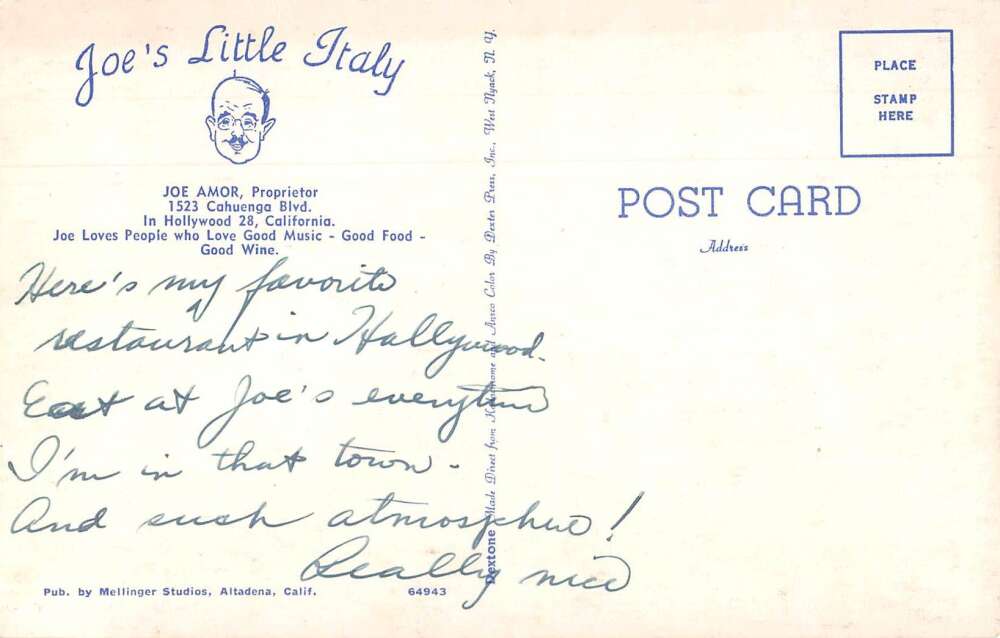 Joe's Little Italy
JOE AMOR, Proprietor
1523 Cahuenga Blvd.
In Hollywood 28, California.
Joe Loves People who Love Good Music - Good Food -
Good Wine.
Here's my favorite
restaurant in Hollywood.
Eat at Joe's everytime
I'm in that town.
And such atmosphere!
Really nice
Pub. by Mellinger Studios, Altadena, Calif.
64943
Dextone Made Direct from Kodachrome and Ansco Color By Dexter Press, Inc., West Nyack, N. Y.
PLACE
STAMP
HERE
POST CARD
Address